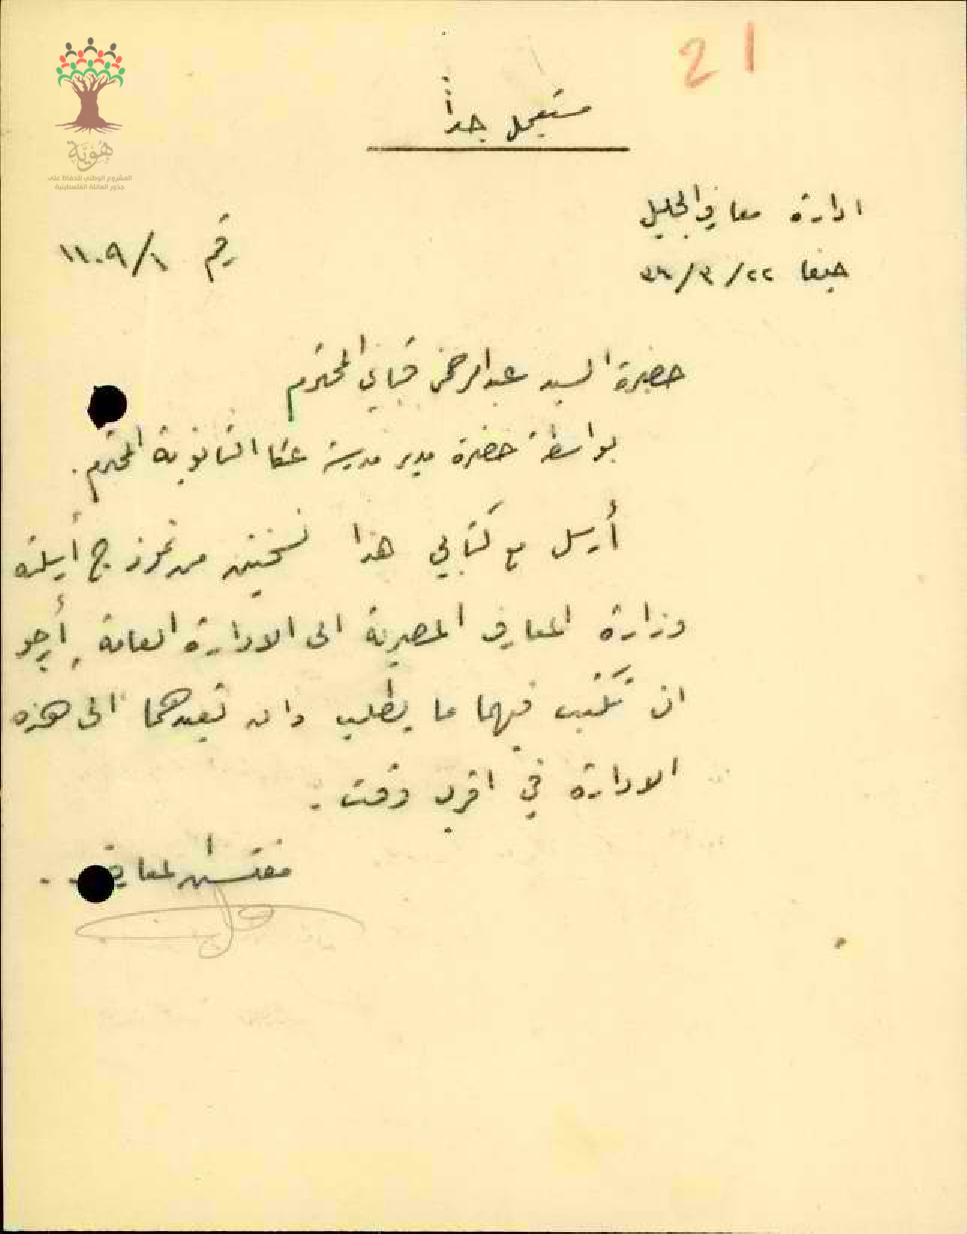 21
مستعجل جداً
ادارة معارف الجليل
حيفا ٢٢/٣/٣٦
رقم ١١٠٩/١
حضرة السيد عبدالرحمن قباني المحترم
بواسطة حضرة مدير مدرسة عكا الثانوية المحترم.
أرسل مع كتابي هذا نسختين من نموذج أرسلته
وزارة المعارف المصرية الى الادارة العامة، أرجو
ان تكتب فيهما ما يطلب وان تعيدهما الى هذه
الادارة في اقرب وقت.
مفتش المعارف
هُوِيَّة
المشروع الوطني للحفاظ على
جذور العائلة الفلسطينية